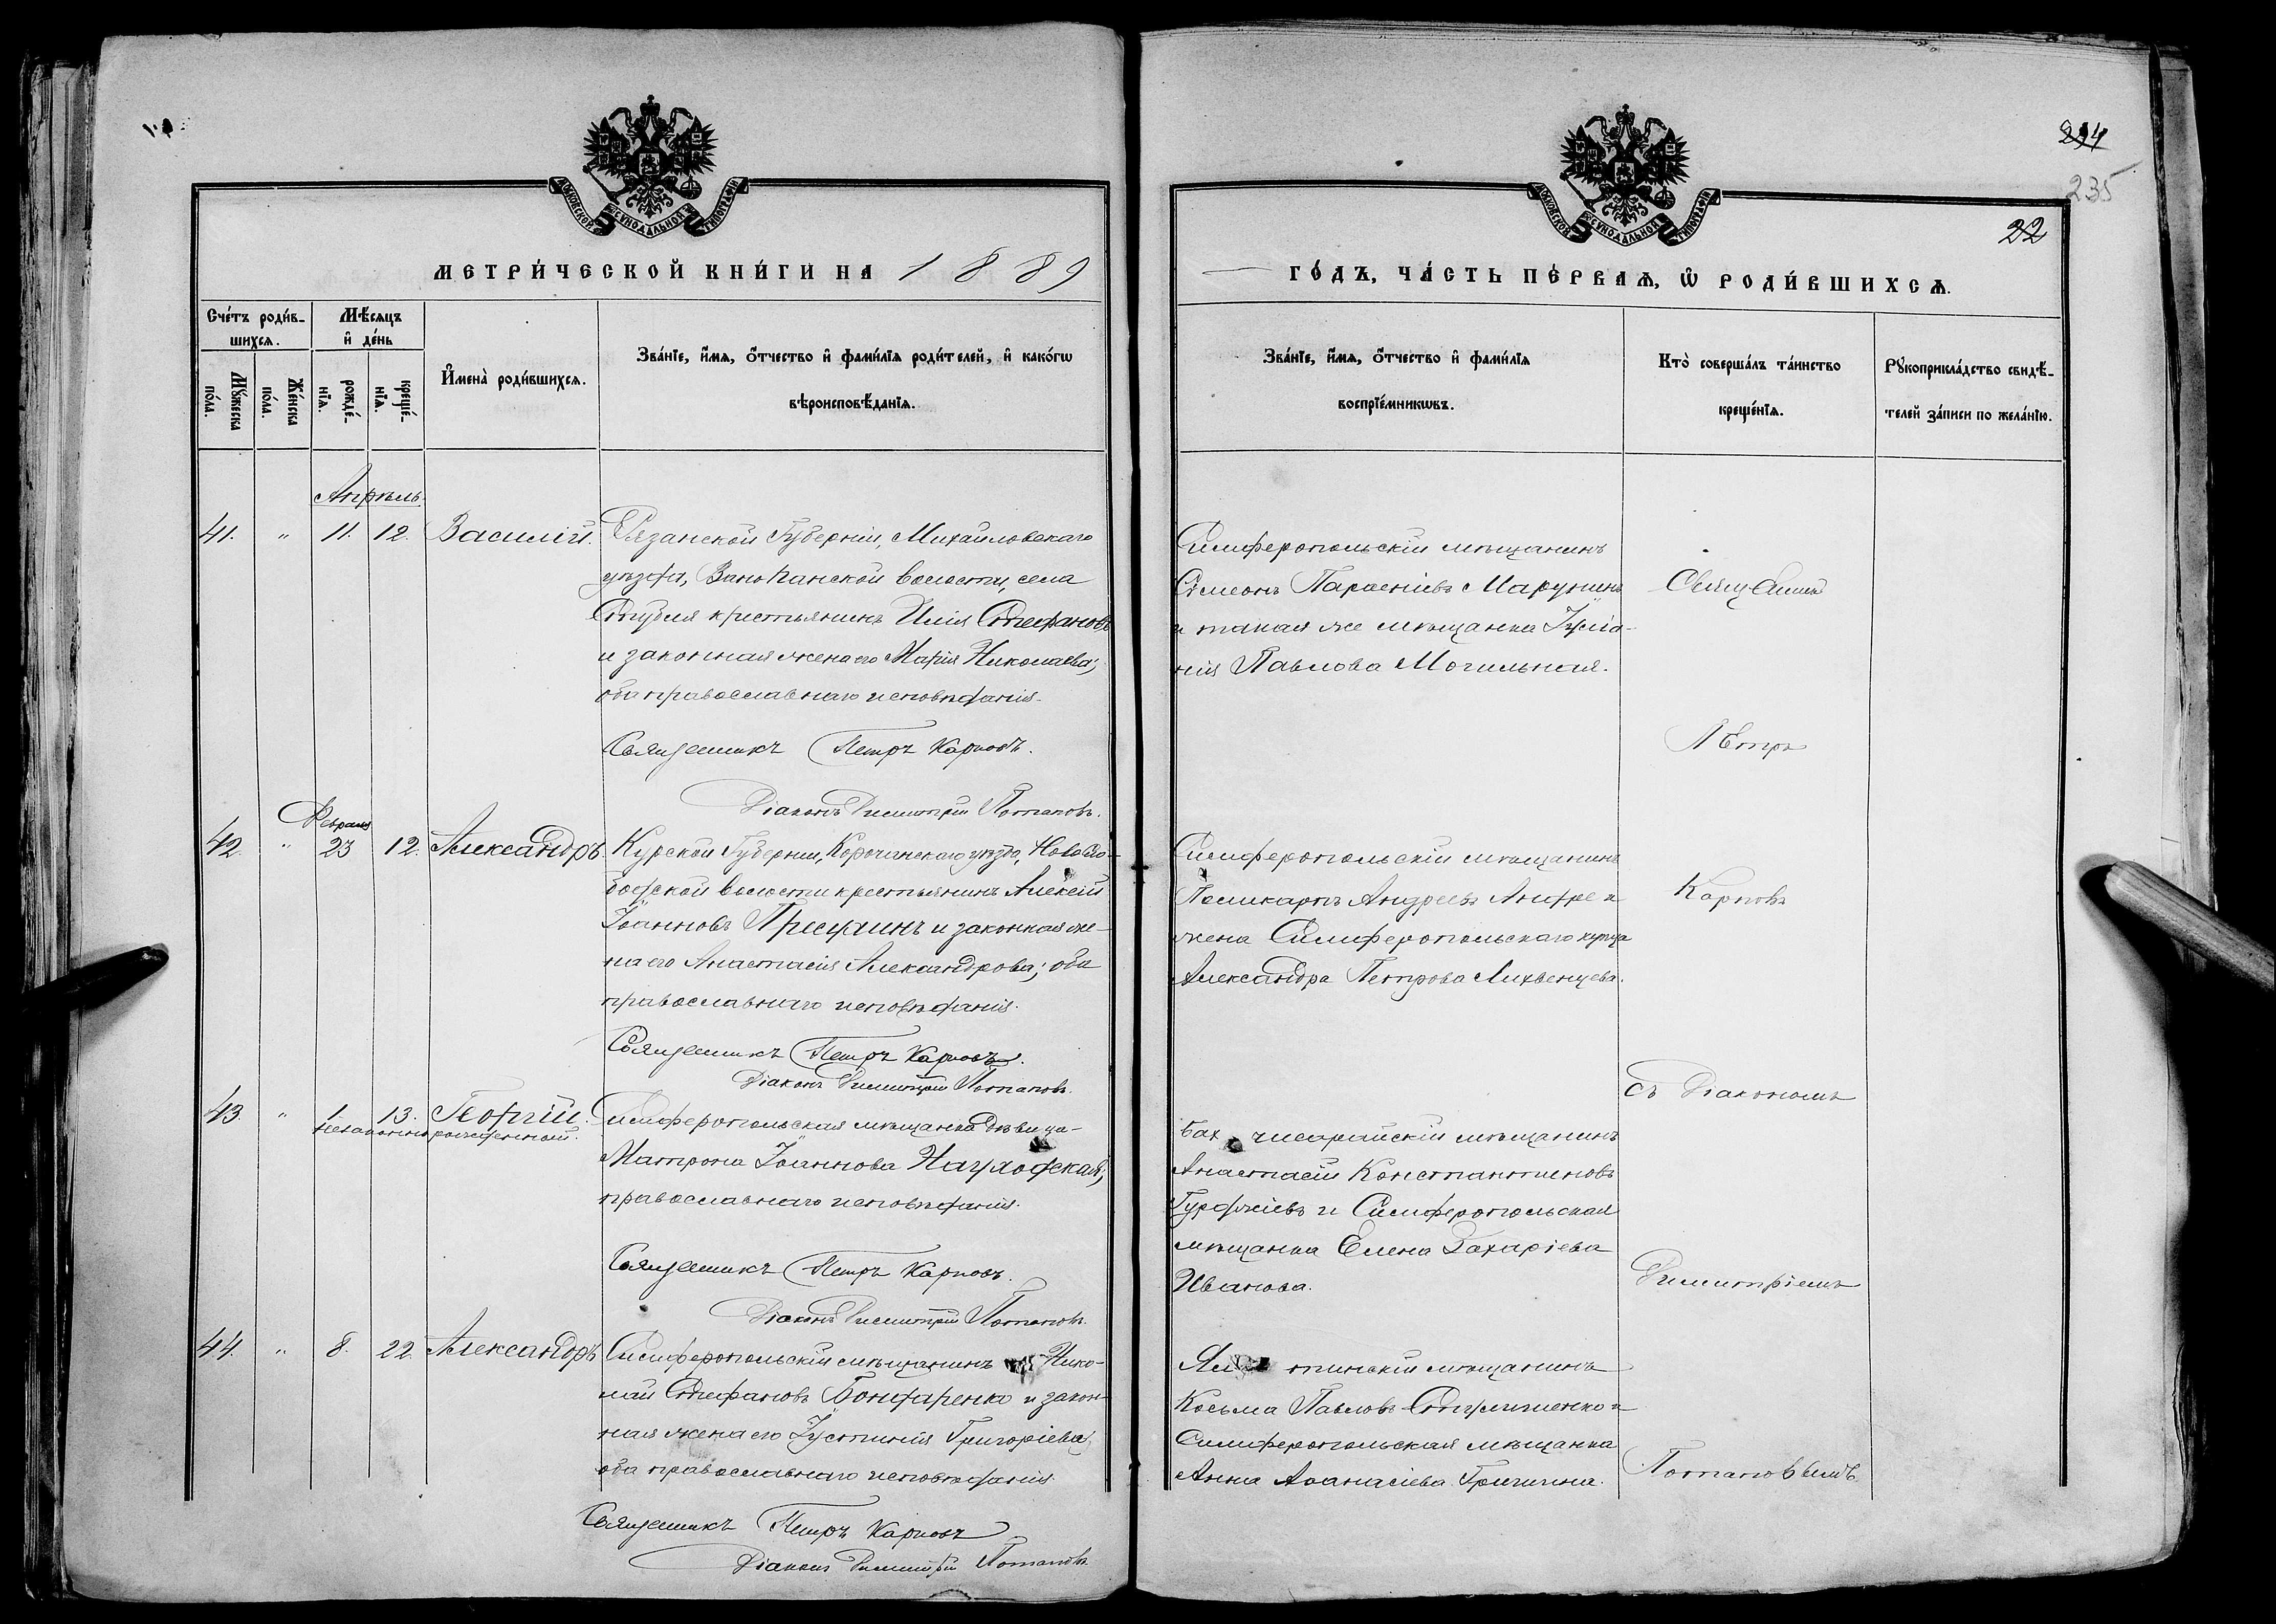 234
235
22
МОСКОВСКОЙ СѴНОДАЛЬНОЙ ТИПОГРАФІИ
МЕТРИ́ЧЕСКОЙ КНИ́ГИ НА 1889
Сче́тъ роди́в-
шихсѧ.
Мѣ́сѧцъ
и҆ де́нь
Мꙋ́жеска
по́ла.
Же́нска
по́ла.
рожде́-
нїѧ.
креще́-
нїѧ.
И҆мена̀ роди́вшихсѧ.
Зва́нїе, и҆́мѧ, ѻ҆́тчество и҆ фами́лїѧ роди́телей, и҆ како́гѡ
вѣроисповѣ́данїѧ.
Апрѣль.
41. " 11. 12. Василій.
Рязанской Губерніи, Михайловскаго
уѣзда, волости, села
крестьянинъ Илія Стефановъ
и законная жена его Марія Николаева;
оба православнаго исповѣданія.
Священникъ Петръ Карповъ.
Діаконъ Димитрій Потаповъ.
Февраля
42. " 23 12. Александръ.
Курской Губерніи, Корочанскаго уѣзда, Новосло-
бодской волости крестьянинъ Алексій
Іоанновъ и законная же-
на его Анастасія Александрова; оба
православнаго исповѣданія.
Священникъ Петръ Карповъ.
Діаконъ Димитрій Потаповъ.
43. " 1. 13. Георгій.
незаконнорожденный.
Симферопольская мѣщанка дѣвица
Матрона Іоаннова
православнаго исповѣданія.
Священникъ Петръ Карповъ.
Діаконъ Димитрій Потаповъ.
44. " 8. 22. Александръ
Симферопольскій мѣщанинъ Нико-
лай Стефановъ Бондаренко и закон-
ная жена его Іустинія Григоріева,
оба православнаго исповѣданія.
Священникъ Петръ Карповъ
Діаконъ Димитрій Потаповъ.
МОСКОВСКОЙ СѴНОДАЛЬНОЙ ТИПОГРАФІИ
ГО́ДЪ, ЧА́СТЬ ПЕ́РВАѦ, Ѽ РОДИ́ВШИХСѦ.
Зва́нїе, и҆́мѧ, ѻ҆́тчество и҆ фами́лїѧ
воспрїе́мникѡвъ.
Кто̀ соверша́лъ та́инство
креще́нїѧ.
Рꙋкоприкла́дство свидѣ́-
телей за́писи по жела́нїю.
Симферопольскій мѣщанинъ
Симеонъ Парѳеніевъ Марунинъ
и такая же мѣщанка Іуліа-
нія Павлова Могильная.
Симферопольскій мѣщанинъ
Поликарпъ Андреевъ и
жена Симферопольскаго купца
Александра Петрова Лихвенцева.
Бахчисарайскій мѣщанинъ
Анастасій Константиновъ
Гурджіевъ и Симферопольская
мѣщанка Елена Захаріева
Иванова.
мѣщанинъ
Косьма Павловъ и
Симферопольская мѣщанка
Анна Аѳанасіева
Священникъ
Петръ
Карповъ
съ Діакономъ
Димитріемъ
Потаповымъ.